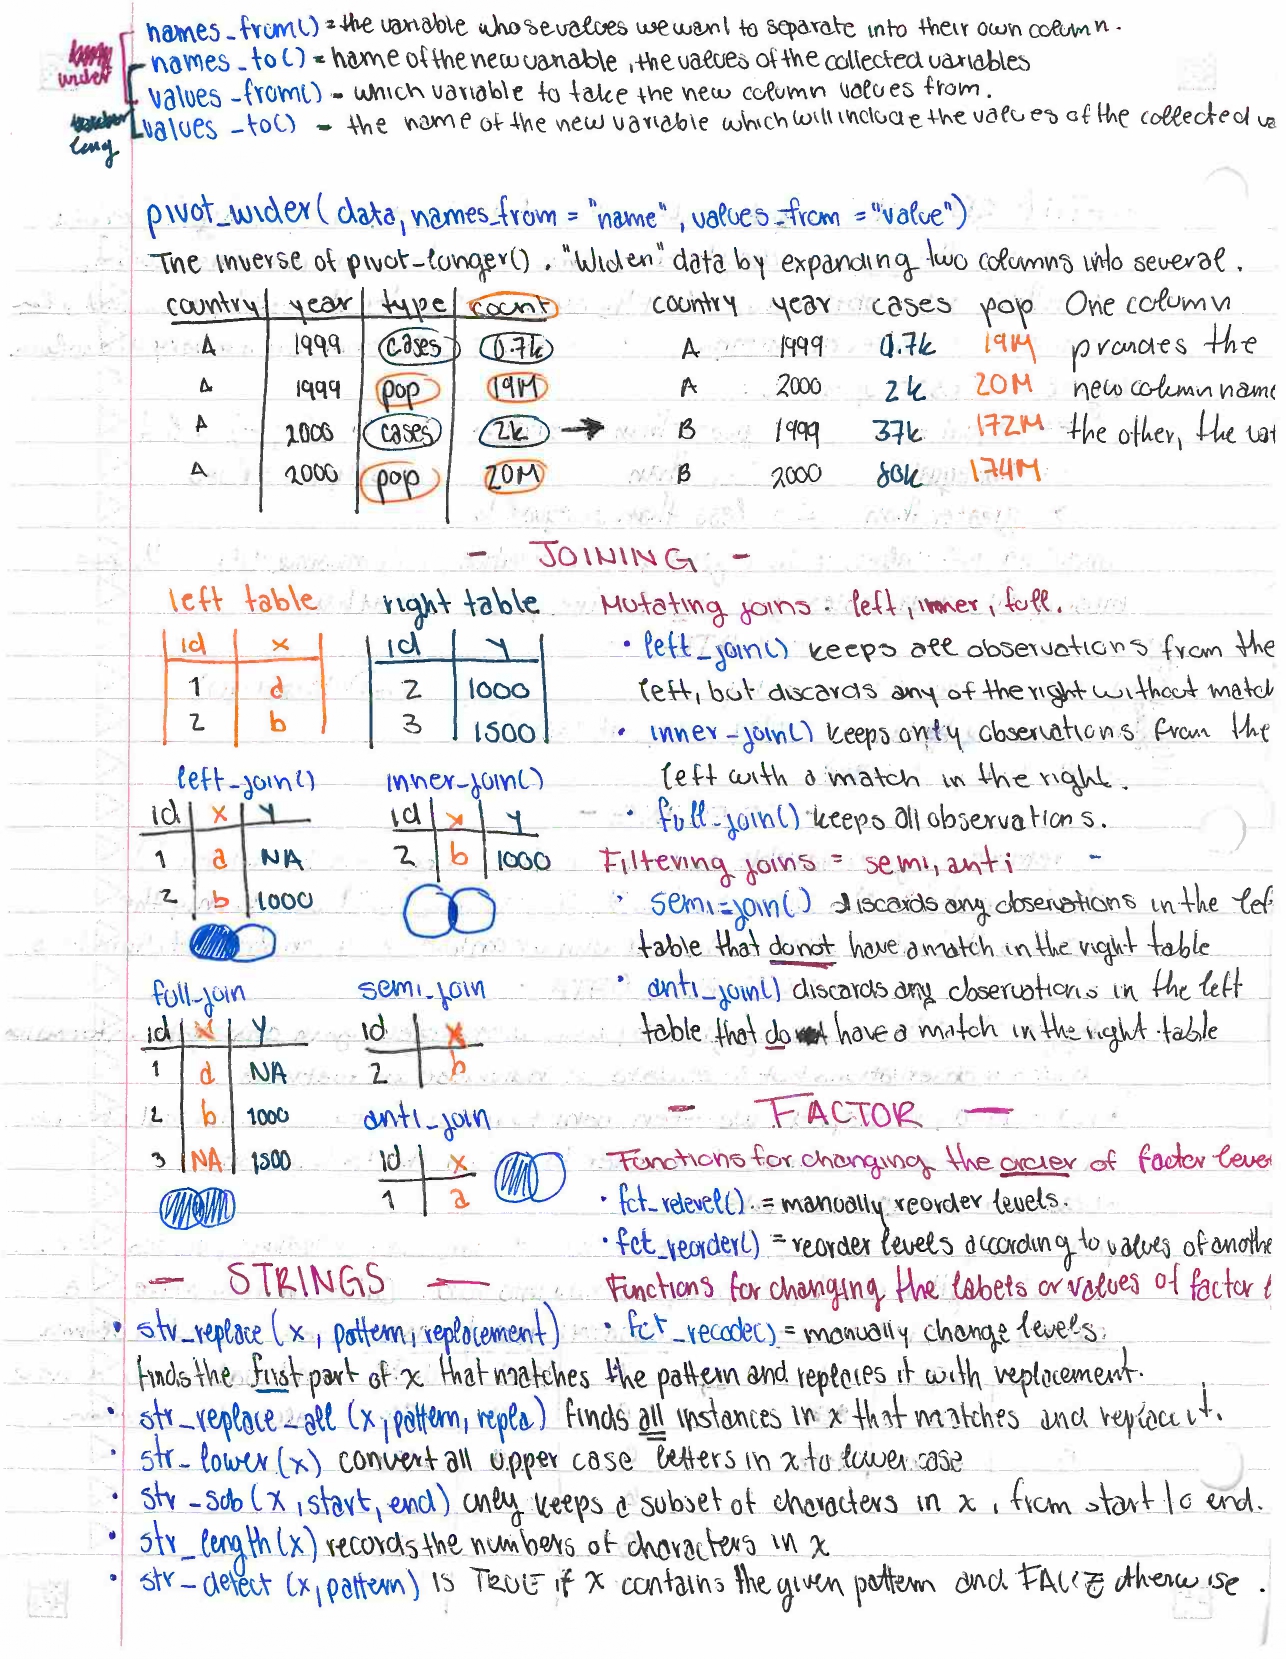 names_from() = the variable whose values we want to separate into their own column.
wider
names_to() = name of the new variable, the values of the collected variables
values_from() - which variable to take the new column values from.
values_to() - the name of the new variable which will include the values of the collected va
long
pivot_wider(data, names_from = "name", values_from = "value")
The inverse of pivot_longer(). "Widen" data by expanding two columns into several.
country year type count
A 1999 cases 0.7k
A 1999 pop 19M
A 2000 cases 2k
A 2000 pop 20M
country year cases pop
A 1999 0.7k 19M
A 2000 2k 20M
B 1999 37k 172M
B 2000 80k 174M
One column
provides the
new column name
the other, the val
- JOINING -
left table
id x
1 a
2 b
right table
id y
2 1000
3 1500
left_join()
id x y
1 a NA
2 b 1000
inner_join()
id x y
2 b 1000
full_join
id x y
1 a NA
2 b 1000
3 NA 1500
semi_join
id x
2 b
anti_join
id x
1 a
Mutating joins: left, inner, full.
• left_join() keeps all observations from the
left, but discards any of the right without match
• inner_join() keeps only observations from the
left with a match in the right.
• full_join() keeps all observations.
Filtering joins = semi, anti
• semi_join() discards any observations in the lef
table that do not have a match in the right table
• anti_join() discards any observations in the left
table that do have a match in the right table
- FACTOR -
Functions for changing the order of factor leve
• fct_relevel() = manually reorder levels.
• fct_reorder() = reorder levels according to values of anothe
Functions for changing the labels or values of factor l
• fct_recode() = manually change levels.
- STRINGS -
• str_replace(x, pattern, replacement)
finds the first part of x that matches the pattern and replaces it with replacement.
• str_replace_all(x, pattern, repla) finds all instances in x that matches and replace it.
• str_lower(x) convert all upper case letters in x to lower case
• str_sub(x, start, end) only keeps a subset of characters in x, from start to end.
• str_length(x) records the numbers of characters in x
• str_detect(x, pattern) is TRUE if x contains the given pattern and FALSE otherwise.